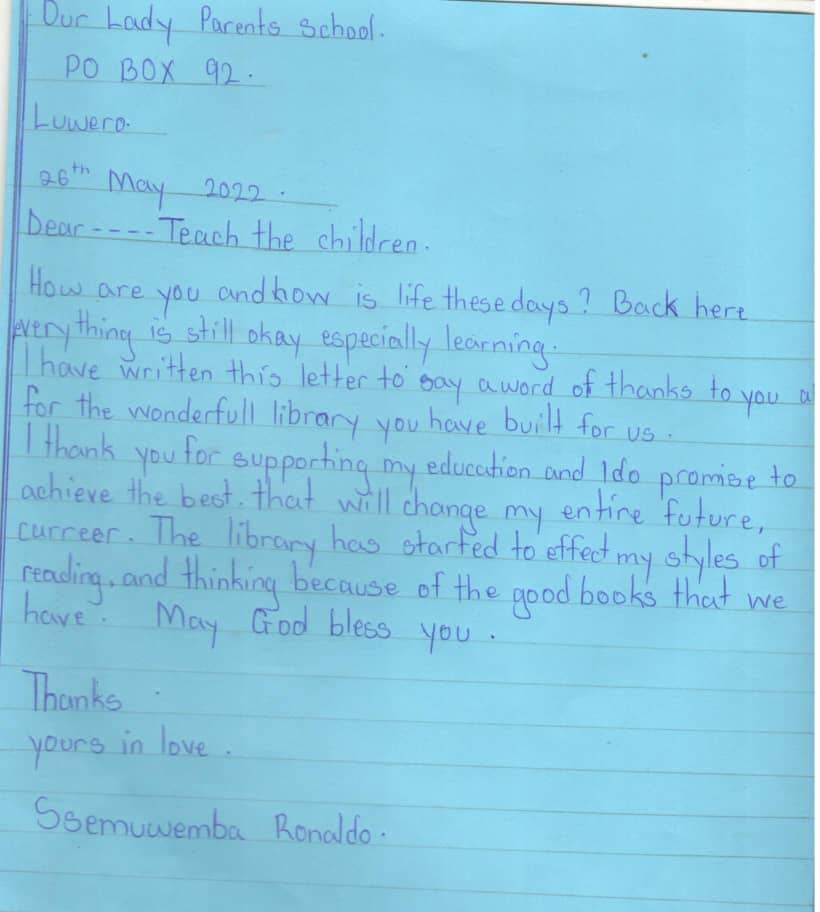 Our Lady Parents School.
PO BOX 92.
Luwero.
26th May 2022.
Dear ---- Teach the children.
How are you and how is life these days? Back here
everything is still okay especially learning.
I have written this letter to say a word of thanks to you a
for the wonderfull library you have built for us.
I thank you for supporting my education and I do promise to
achieve the best. that will change my entire future,
curreer. The library has started to effect my styles of
reading, and thinking because of the good books that we
have. May God bless you.
Thanks
yours in love.
Ssemuwemba Ronaldo.